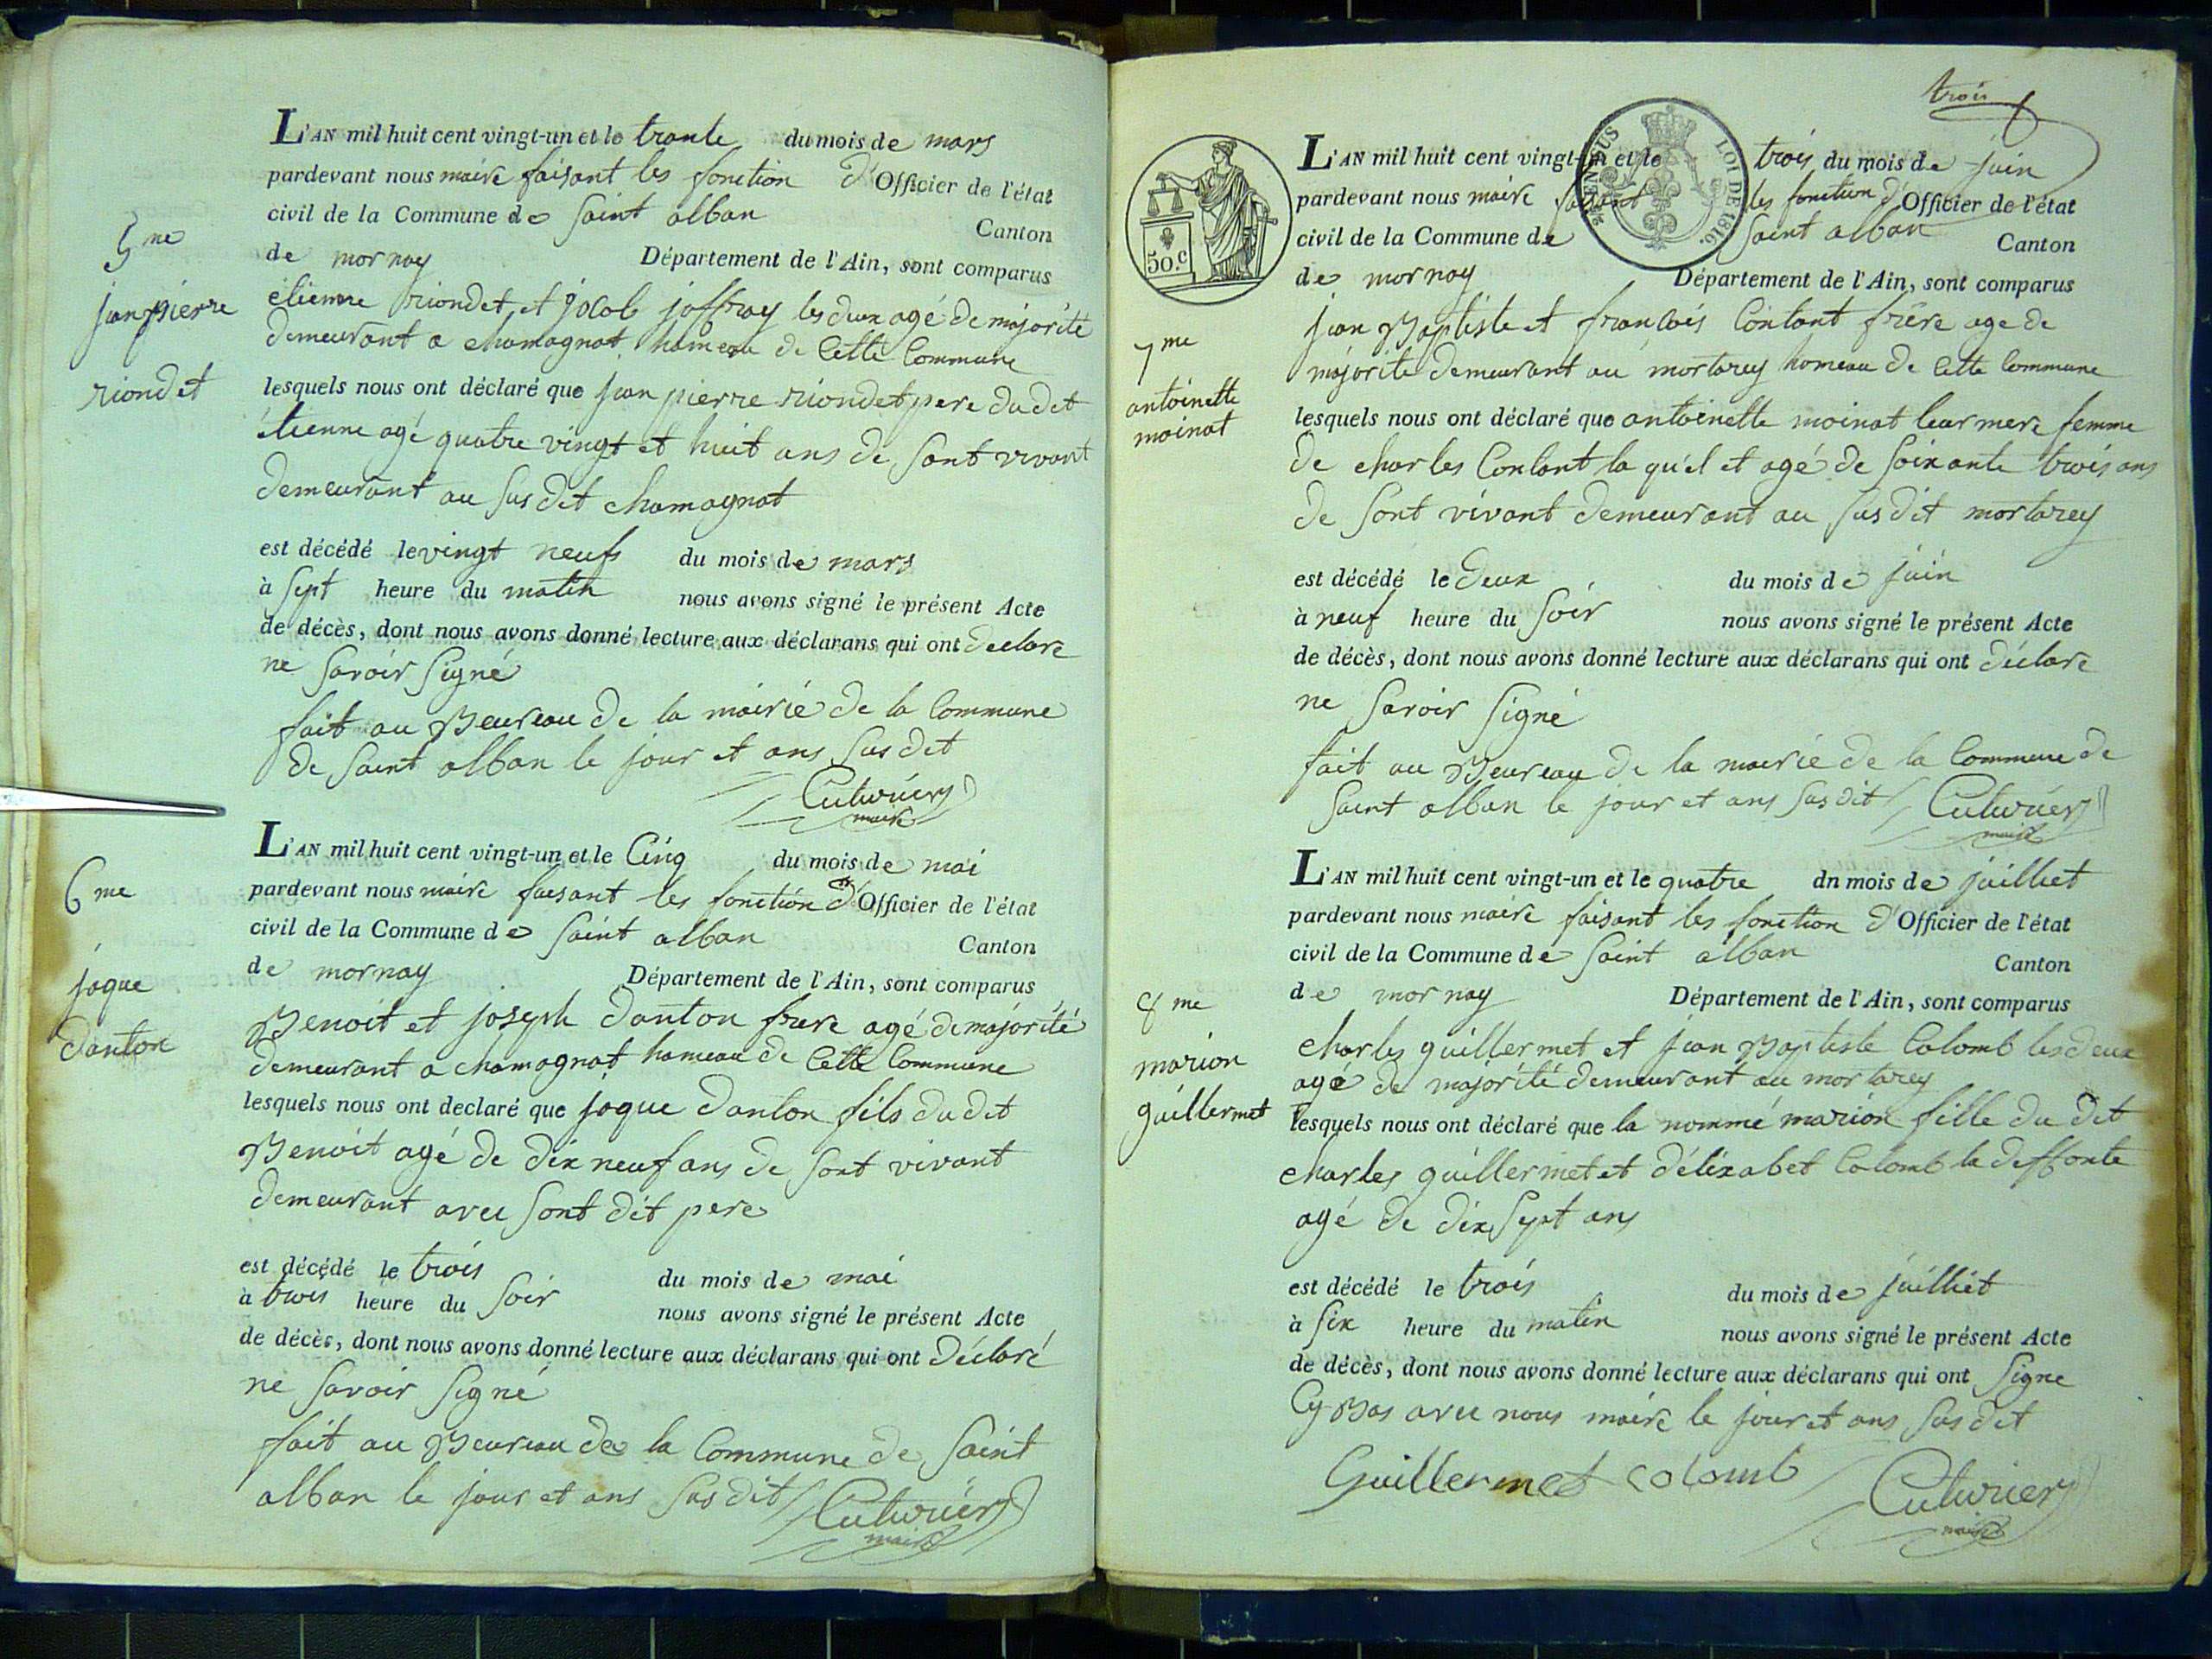 5me
jean pierre
riondet
L'AN mil huit cent vingt-un et le trante du mois de mars
pardevant nous maire faisant les fonction d'Officier de l'état
civil de la Commune de Saint alban Canton
de mornay Département de l'Ain, sont comparus
etienne riondet et jacob joffray les deux agé de majorité
demeurant a chamagnat hameau de Cette Commune
lesquels nous ont déclaré que jean pierre riondet pere du dit
étienne agé quatre vingt et huit ans de Sont vivant
demeurant au Sus dit chamagnat
est décédé le vingt neufs du mois de mars
à Sept heure du matin nous avons signé le présent Acte
de décès, dont nous avons donné lecture aux déclarans qui ont declare
ne Savoir Signé
fait au Beureau de la mairie de la Commune
de Saint alban le jour et ans Sus dit
maire
6me
jaque
danton
L'AN mil huit cent vingt-un et le Cinq du mois de mai
pardevant nous maire faisant les fonction d'Officier de l'état
civil de la Commune de Saint alban Canton
de mornay Département de l'Ain, sont comparus
Benoit et joseph danton frere agé de majorité
demeurant a chamagnat hameau de Cette Commune
lesquels nous ont declaré que jaque danton fils du dit
Benoit agé de dix neuf ans de Sont vivant
demeurant avec Sont dit pere
est décédé le trois du mois de mai
à trois heure du Soir nous avons signé le présent Acte
de décès, dont nous avons donné lecture aux déclarans qui ont déclaré
ne Savoir Signé
fait au Beureau de la Commune de Saint
alban le jour et ans Sus dit
maire
trois
50.c
LOI DE 1816.
7me
antoinette
moinat
L'AN mil huit cent vingt-un et le trois du mois de juin
pardevant nous maire faisant les fonction d'Officier de l'état
civil de la Commune de Saint alban Canton
de mornay Département de l'Ain, sont comparus
jean Baptiste et francois Contant frère age de
majorité demeurant au mortarey hameau de Cette Commune
lesquels nous ont déclaré que antoinette moinat leur mere femme
de charles Contant la qu'el et agé de Soixante trois ans
de Sont vivant demeurant au Sus dit mortarey
est décédé le deux du mois de juin
à neuf heure du Soir nous avons signé le présent Acte
de décès, dont nous avons donné lecture aux déclarans qui ont déclare
ne Savoir Signé
fait au Beureau de la mairie de la Commune de
Saint alban le jour et ans Sus dit
maire
8me
marion
guillermet
L'AN mil huit cent vingt-un et le quatre dn mois de juilliet
pardevant nous maire faisant les fonction d'Officier de l'état
civil de la Commune de Saint alban Canton
de mornay Département de l'Ain, sont comparus
charles guillermet et jean Baptiste Colomb les deux
agé de majorité demeurant au mortarey
lesquels nous ont déclaré que la nommé marion fille du dit
charles guillermet et d'élixabet Colomb la deffonte
agé de dix Sept ans
est décédé le trois du mois de juilliet
à Six heure du matin nous avons signé le présent Acte
de décès, dont nous avons donné lecture aux déclarans qui ont Signe
Cy-Bas avec nous maire le jour et ans Sus dit
Guillermet colomb
maire